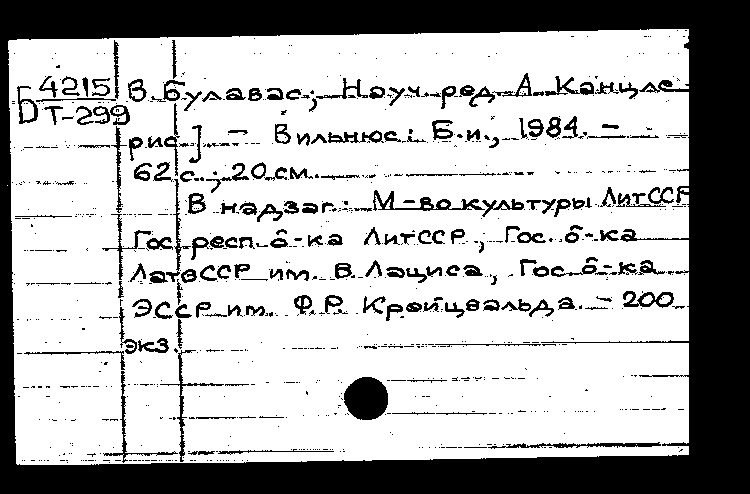 Б 4215/Т-299
В. Булавас; Науч. ред. А. Канцле-
рис] – Вильнюс: Б.и., 1984. –
62 с.; 20 см.
В надзаг.: М-во культуры ЛитССР
Гос. респ. б-ка ЛитССР, Гос. б-ка
ЛатвССР им. В. Лациса, Гос. б-ка
ЭССР им. Ф.Р. Крейцвальда. – 200
экз.